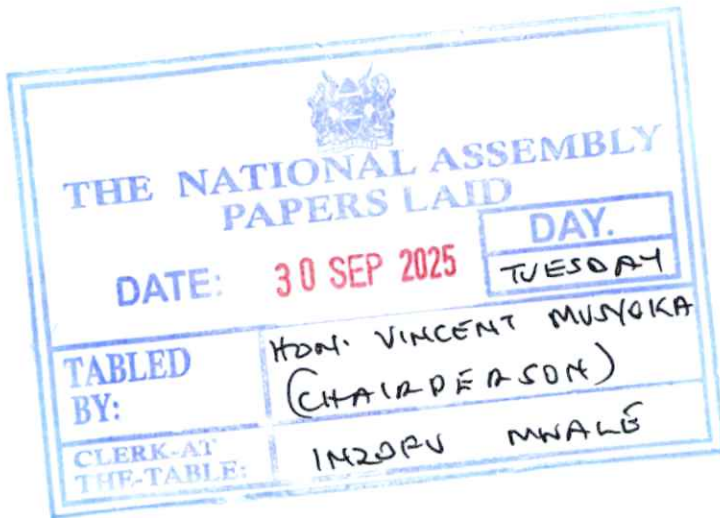 THE NATIONAL ASSEMBLY
PAPERS LAID
DATE: 30 SEP 2025
DAY.
TUESDAY
TABLED BY:
HON. VINCENT MUSYOKA
(CHAIRPERSON)
CLERK-AT THE-TABLE:
MWALE